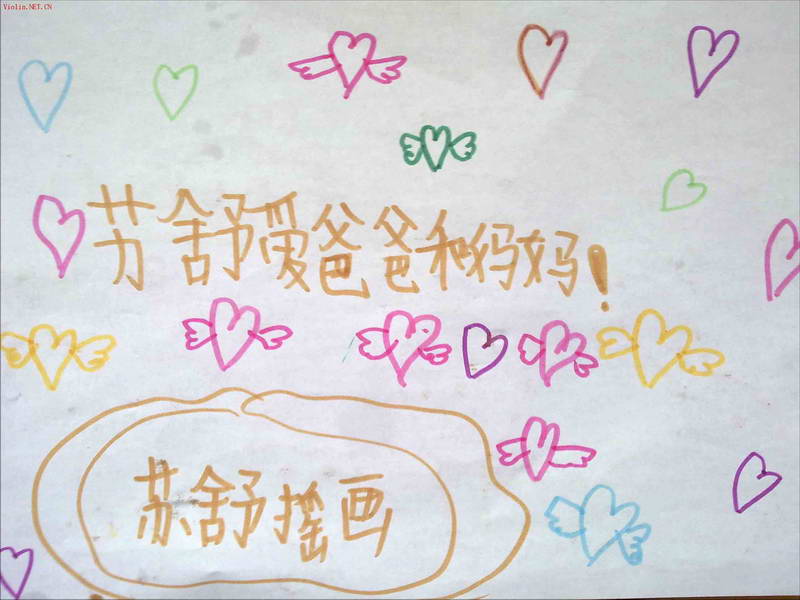 Violin.NET.CN
苏舒爱爸爸和妈妈!
苏舒摇画